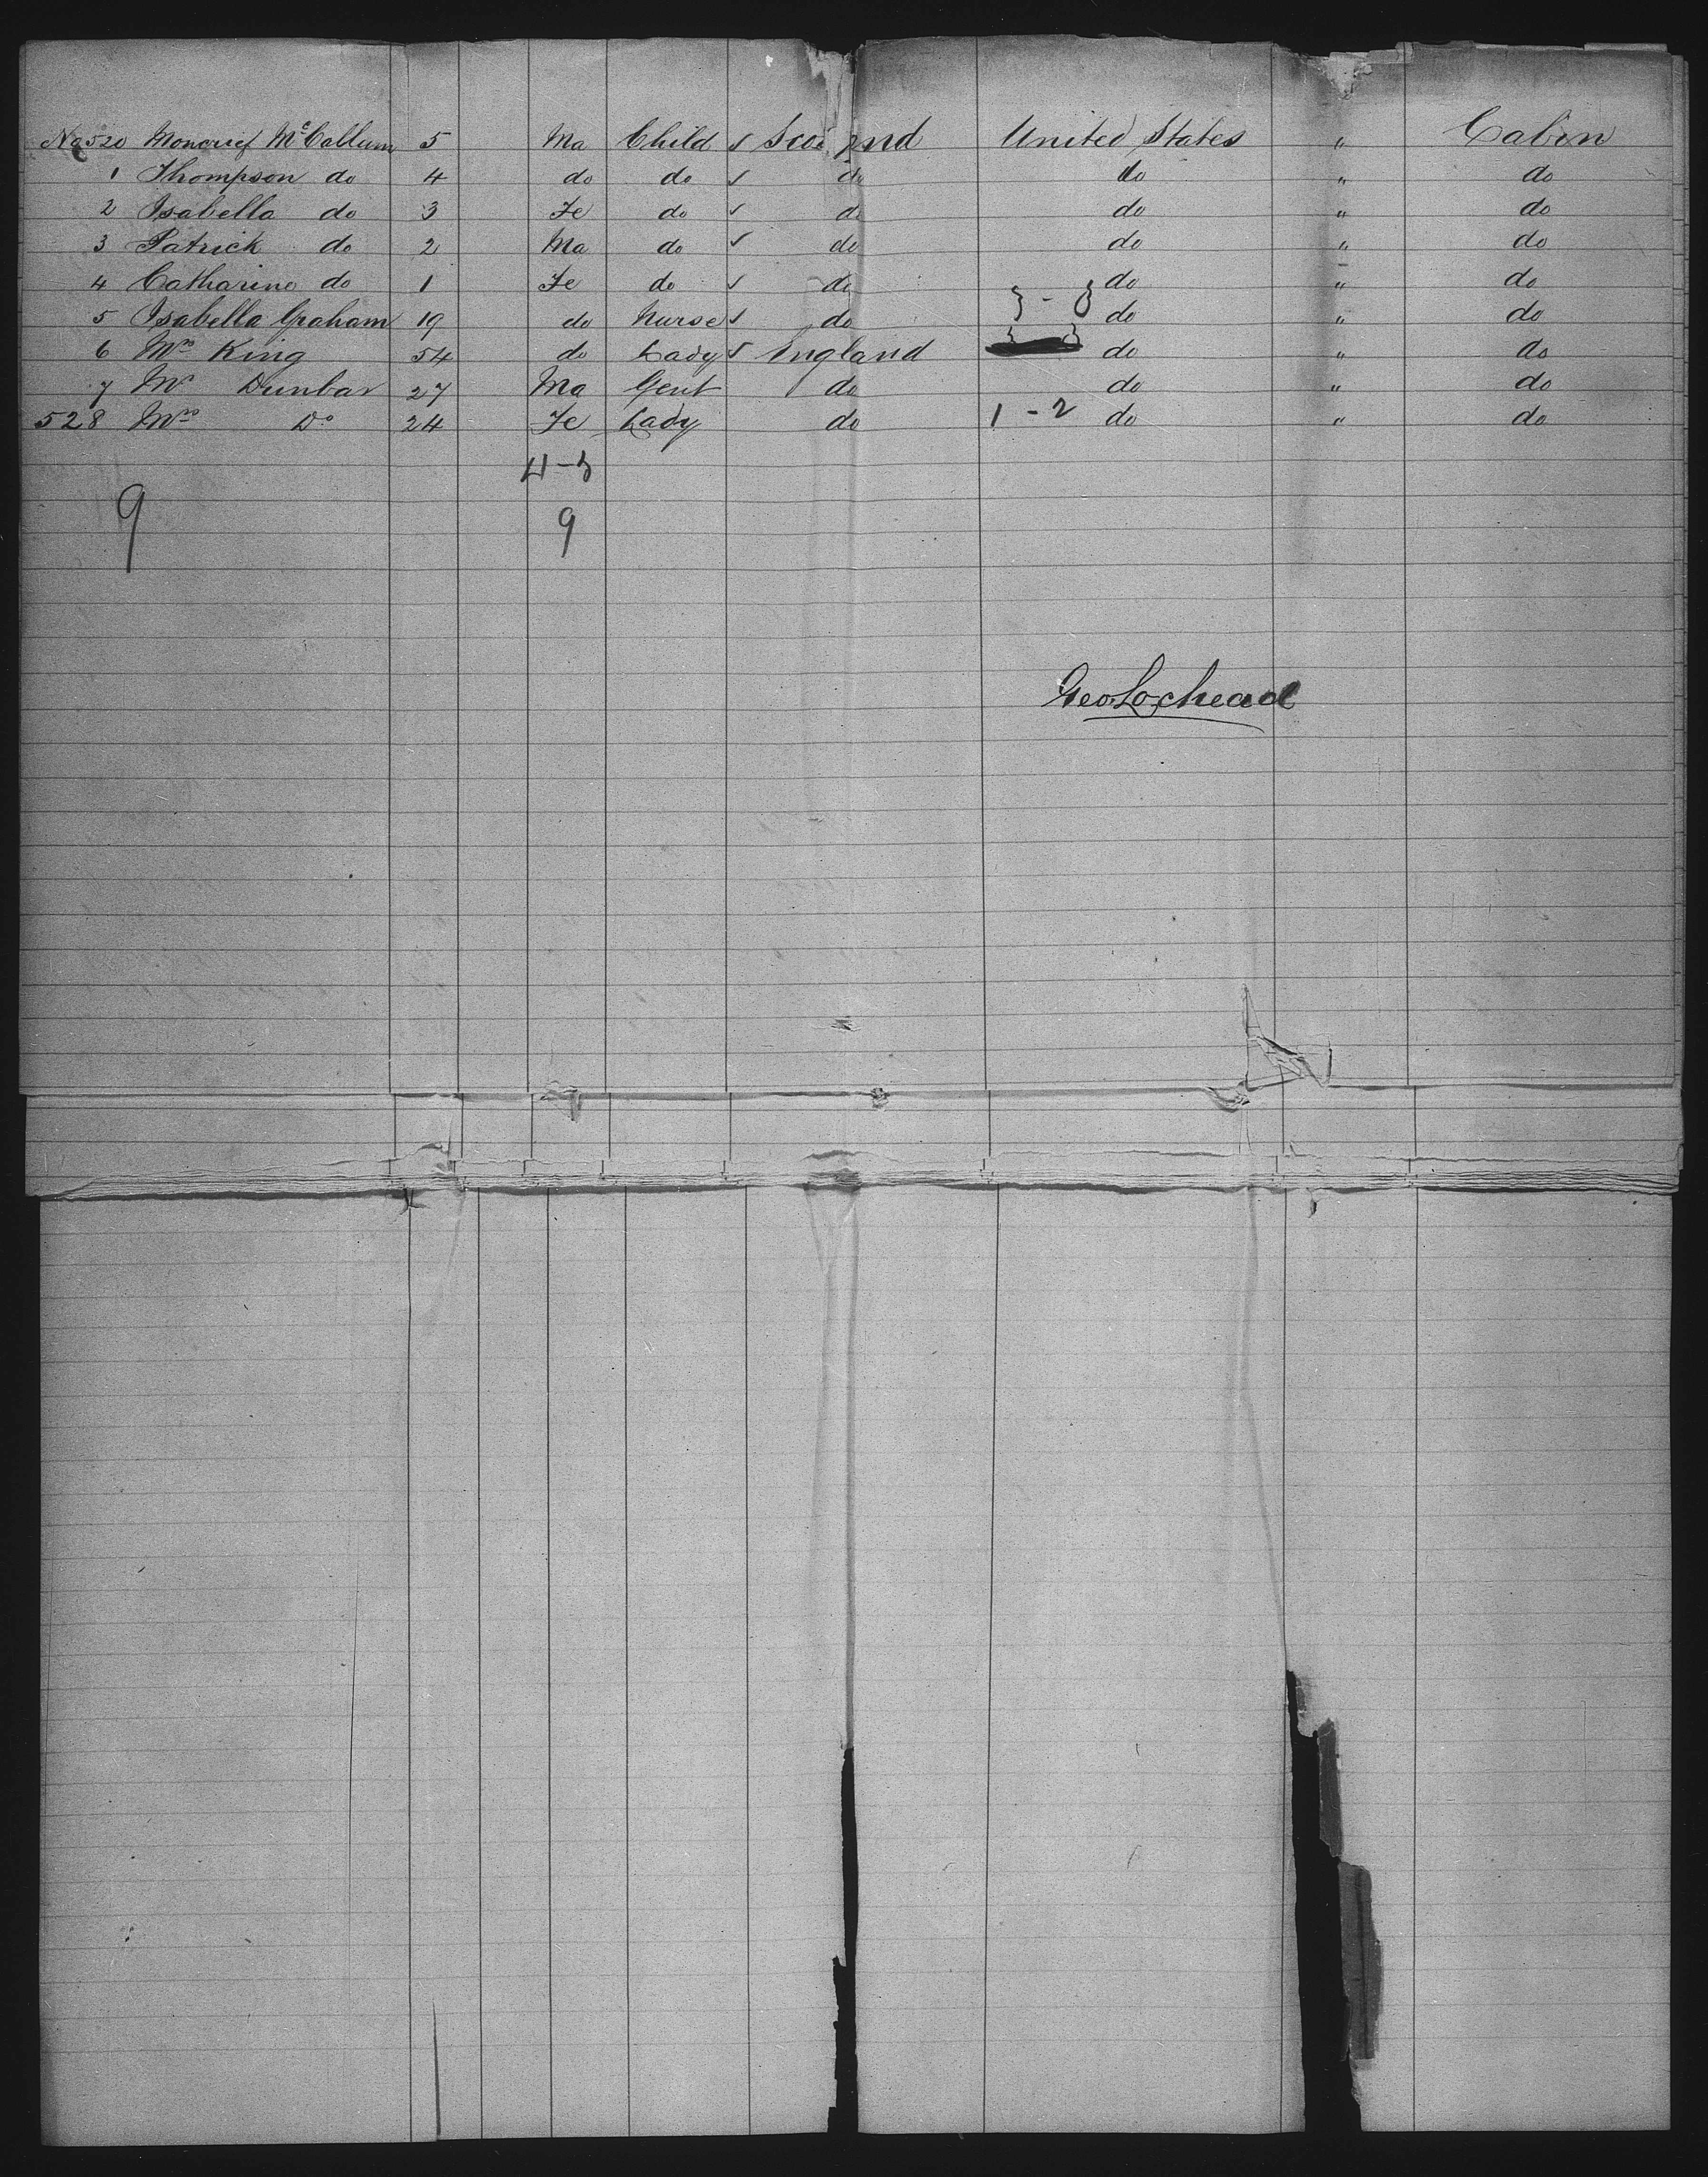 No 520 Moncrief McCallum 5 Ma Child ✓ Scotland United States " Cabin
1 Thompson do 4 do do ✓ do do " do
2 Isabella do 3 Fe do ✓ do do " do
3 Patrick do 2 Ma do ✓ do do " do
4 Catharine do 1 Fe do ✓ do do " do
5 Isabella Graham 19 do Nurse ✓ do do " do
6 Mrs King 54 do Lady ✓ England do " do
7 Mr Dunbar 27 Ma Gent do do " do
528 Mrs Do 24 Fe Lady do 1-2 do " do
4-5
9 9
Geo Lochead